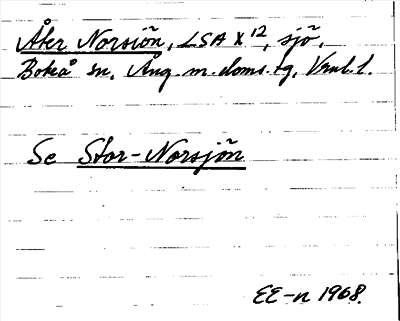 Åter Norsiön, LSA X 12, sjö,
Boteå sn, Ång. m. doms. tg, Vrnl. l.
Se Stor-Norsjön
EE-n 1968.